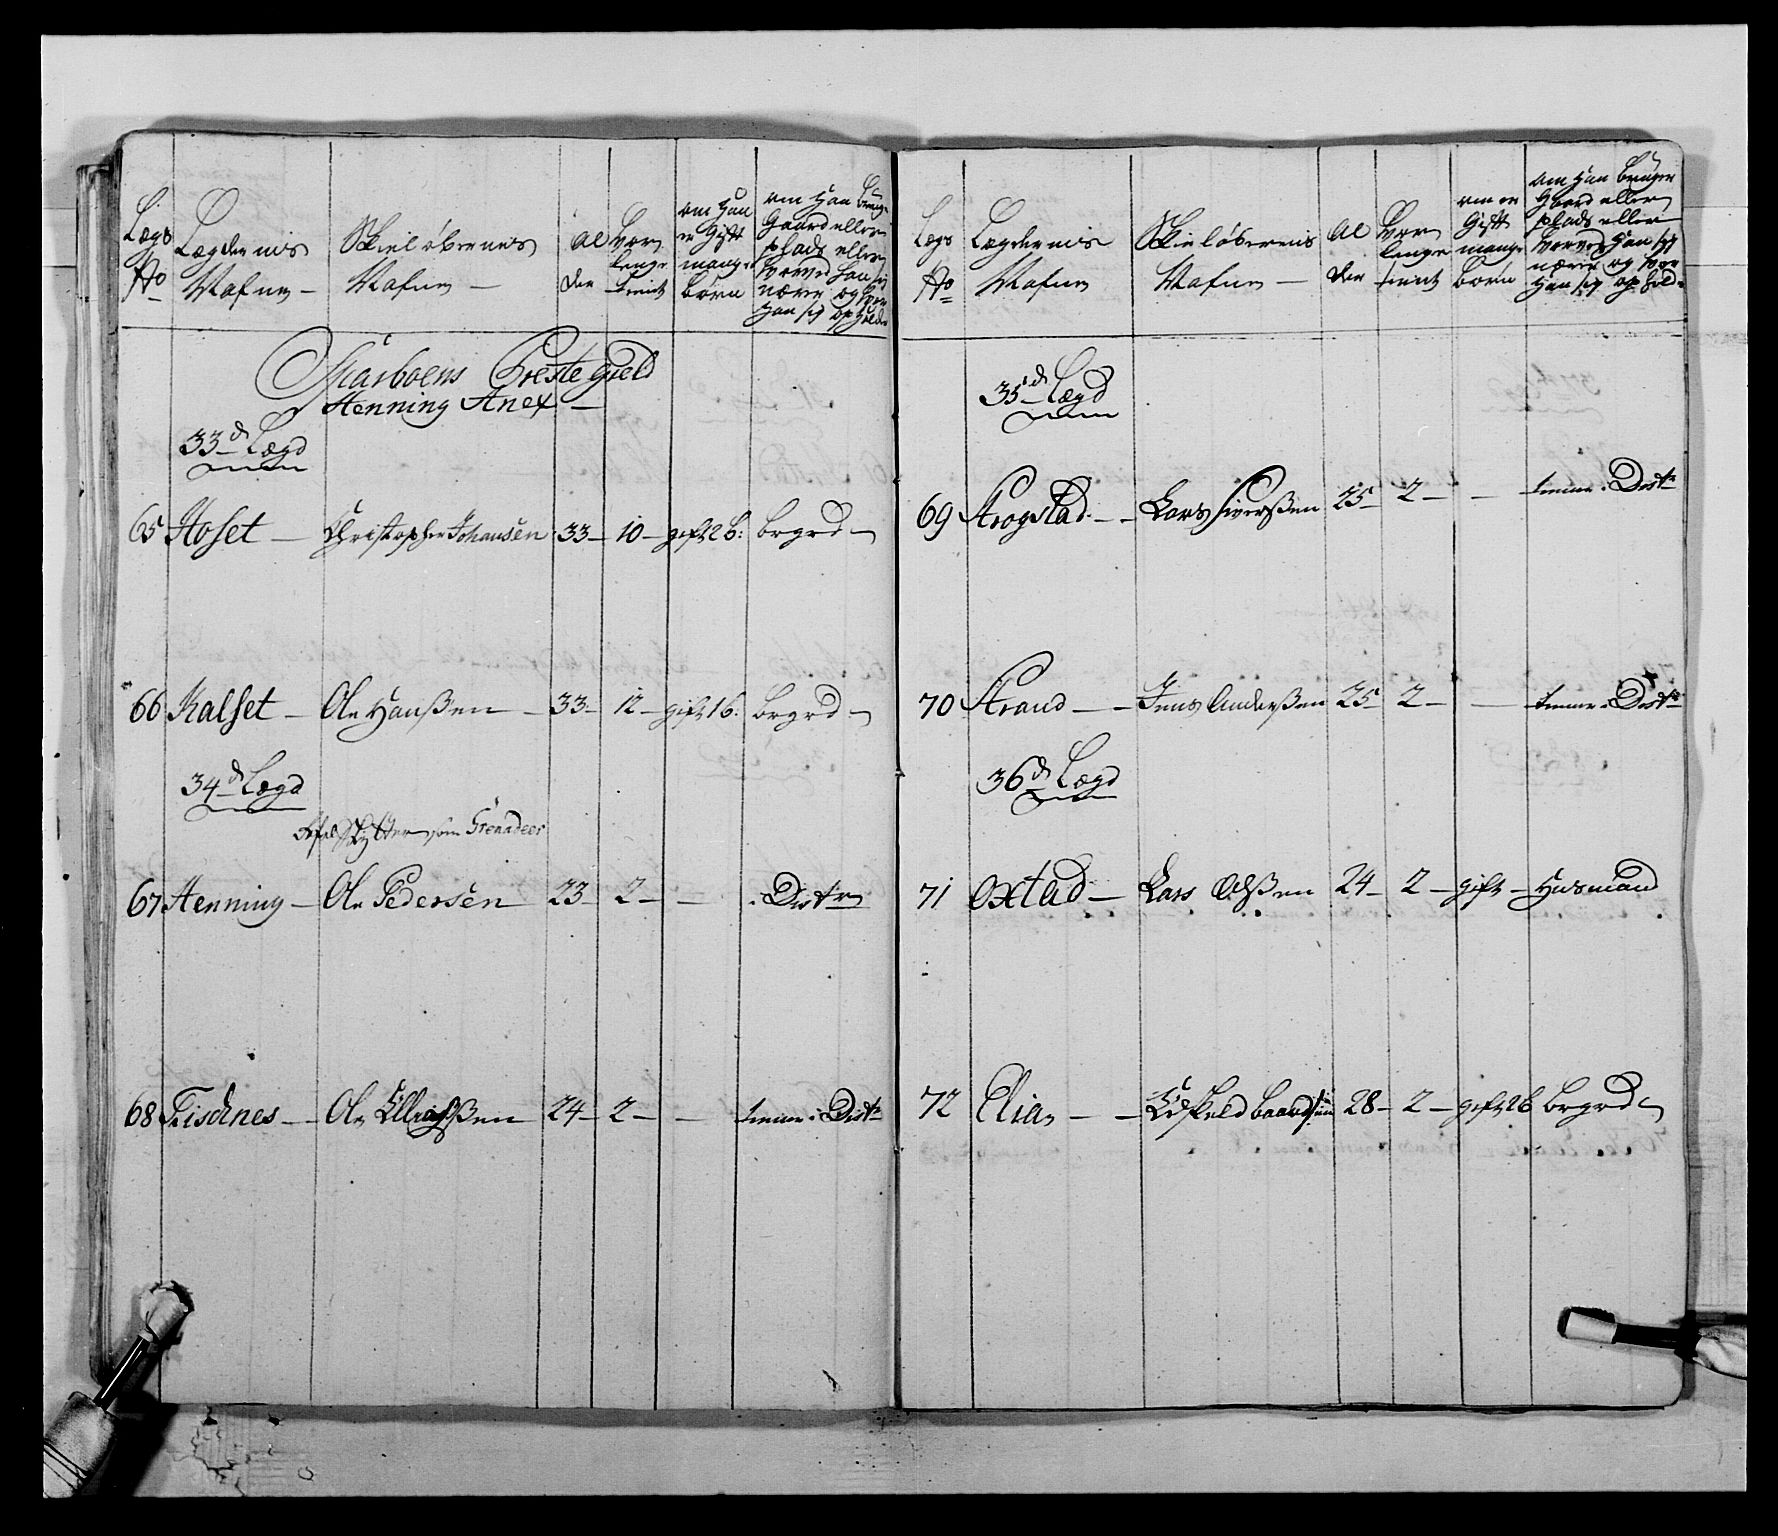 Lægs No Lægdernis Nafne – Skieløbernes Nafne – Al der hvor lenge tient om Han er Gift mange børn om Han bruger Gaard eller plads eller hvorved han sig nærer og hvor Han sig opholder
Skarboens Præste Gield
Henning Anex –
33d Lægd
65 Hoset – Christopher Johansen 33 – 10 – gift 2 b: br grd
66 Kalset – Ole Hanßen – 33 – 12 – gift 1 b: br grd
34d Lægd
som Grenadeer
67 Henning – Ole Pedersen 23 – 2 – – Distr
68 Fischnes – Ole Ellevßen 24 – 2 – – tienner i Distr
Lægs No Lægdernis Nafne Skieløbernis Nafne – Al der hvor lenge tient om er Gift mange børn om Han bruger Gaard eller plads eller hvorved Han sig nærer og hvor Han sig ophold
35d Lægd
69 Strogstad – – Lars Siverßen 25 – 2 – – tienner i Distr
70 Strand – – Jens Anderßen 25 2 – – tienner i Distr
36d Lægd
71 Oxtad – Lars Olßen 24 – 2 – gift – Husmand
72 Elia – – Eskild Baardsen 28 – 2 – gift 2 b br grd